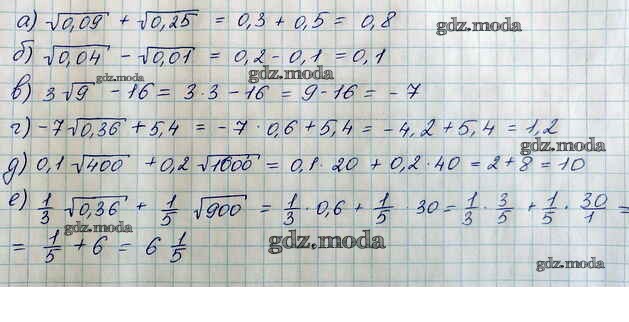 а) √0,09 + √0,25 = 0,3 + 0,5 = 0,8
gdz.moda
б) √0,04 - √0,01 = 0,2 - 0,1 = 0,1
gdz.moda
gdz.moda
в) 3√9 - 16 = 3·3 - 16 = 9 - 16 = -7
г) -7√0,36 + 5,4 = -7·0,6 + 5,4 = -4,2 + 5,4 = 1,2
gdz.moda
д) 0,1√400 + 0,2√1600 = 0,1·20 + 0,2·40 = 2 + 8 = 10
е) 1/3 √0,36 + 1/5 √900 = 1/3·0,6 + 1/5·30 = 1/3·3/5 + 1/5·30/1 =
gdz.moda
= 1/5 + 6 = 6 1/5
gdz.moda
gdz.moda